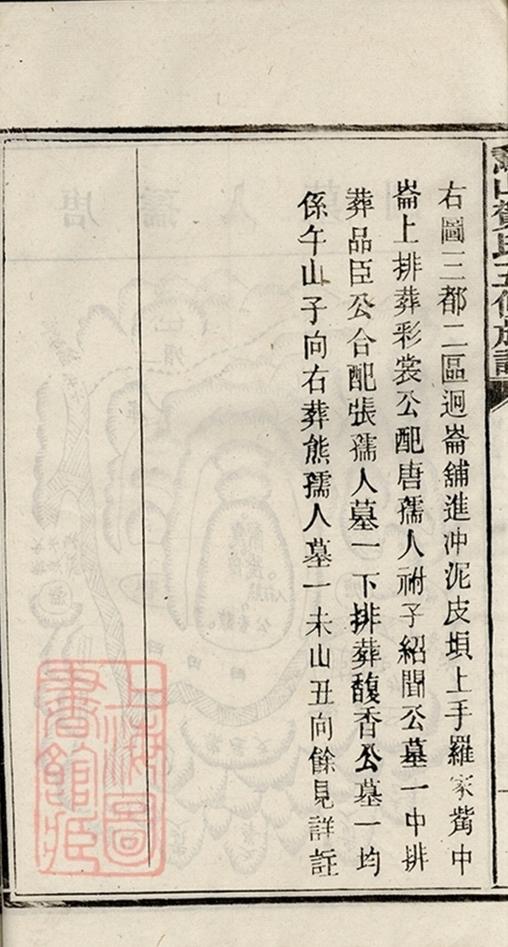 右圖三都二區迥崙舖進冲泥皮垻上手羅家嘴中
崙上排葬彩裳公配唐孺人祔子紹聞公墓一中排
葬品臣公合配張孺人墓一下排葬馥香公墓一均
係午山子向右葬熊孺人墓一未山丑向餘見詳註
上海圖書館藏